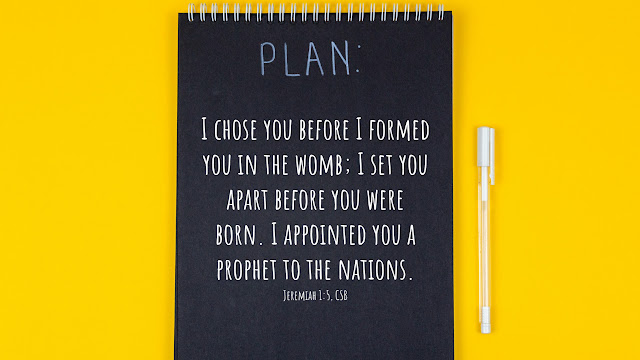 PLAN:
I CHOSE YOU BEFORE I FORMED
YOU IN THE WOMB; I SET YOU
APART BEFORE YOU WERE
BORN. I APPOINTED YOU A
PROPHET TO THE NATIONS.
JEREMIAH 1:5, CSB